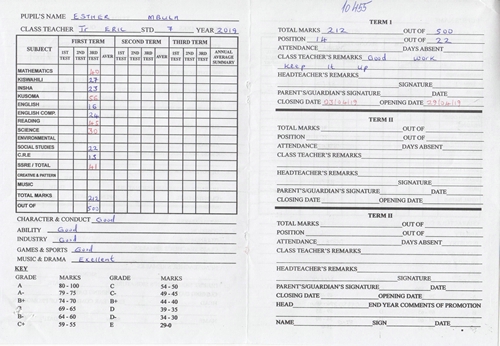 10455
PUPIL'S NAME ESTHER MBULA
CLASS TEACHER Tr ERIC STD 7 YEAR 2019
SUBJECT FIRST TERM SECOND TERM THIRD TERM
1ST TEST 2ND TEST 3RD TEST AVER 1ST TEST 2ND TEST 3RD TEST AVER 1ST TEST 2ND TEST 3RD TEST ANNUAL AVERAGE SUMMARY
MATHEMATICS 40
KISWAHILI 27
INSHA 23
KUSOMA 50
ENGLISH 16
ENGLISH COMP. 24
READING
SCIENCE 30
ENVIRONMENTAL
SOCIAL STUDIES 22
C.R.E 13
SSRE / TOTAL 41
CREATIVE & PATTERN
MUSIC
TOTAL MARKS 212
OUT OF 500
CHARACTER & CONDUCT Good
ABILITY Good
INDUSTRY Good
GAMES & SPORTS Good
MUSIC & DRAMA Excellent
KEY
GRADE MARKS GRADE MARKS
A 80 - 100 C 54 - 50
A- 79 - 75 C- 49 - 45
B+ 74 - 70 B+ 44 - 40
? 69 - 65 D 39 - 35
B- 64 - 60 D- 34 - 30
C+ 59 - 55 E 29-0
TERM I
TOTAL MARKS 212 OUT OF 500
POSITION 14 OUT OF 22
ATTENDANCE DAYS ABSENT
CLASS TEACHER'S REMARKS Good work
keep it up
HEADTEACHER'S REMARKS
SIGNATURE
PARENT'S/GUARDIAN'S SIGNATURE
CLOSING DATE 05/04/19 OPENING DATE 29/04/19
TERM II
TOTAL MARKS OUT OF
POSITION OUT OF
ATTENDANCE DAYS ABSENT
CLASS TEACHER'S REMARKS
HEADTEACHER'S REMARKS
SIGNATURE
PARENT'S/GUARDIAN'S SIGNATURE
CLOSING DATE OPENING DATE
TERM II
TOTAL MARKS OUT OF
POSITION OUT OF
ATTENDANCE DAYS ABSENT
CLASS TEACHER'S REMARKS
HEADTEACHER'S REMARKS
SIGNATURE
PARENT'S/GUARDIAN'S SIGNATURE
CLOSING DATE OPENING DATE
HEAD END YEAR COMMENTS OF PROMOTION
NAME SIGN DATE